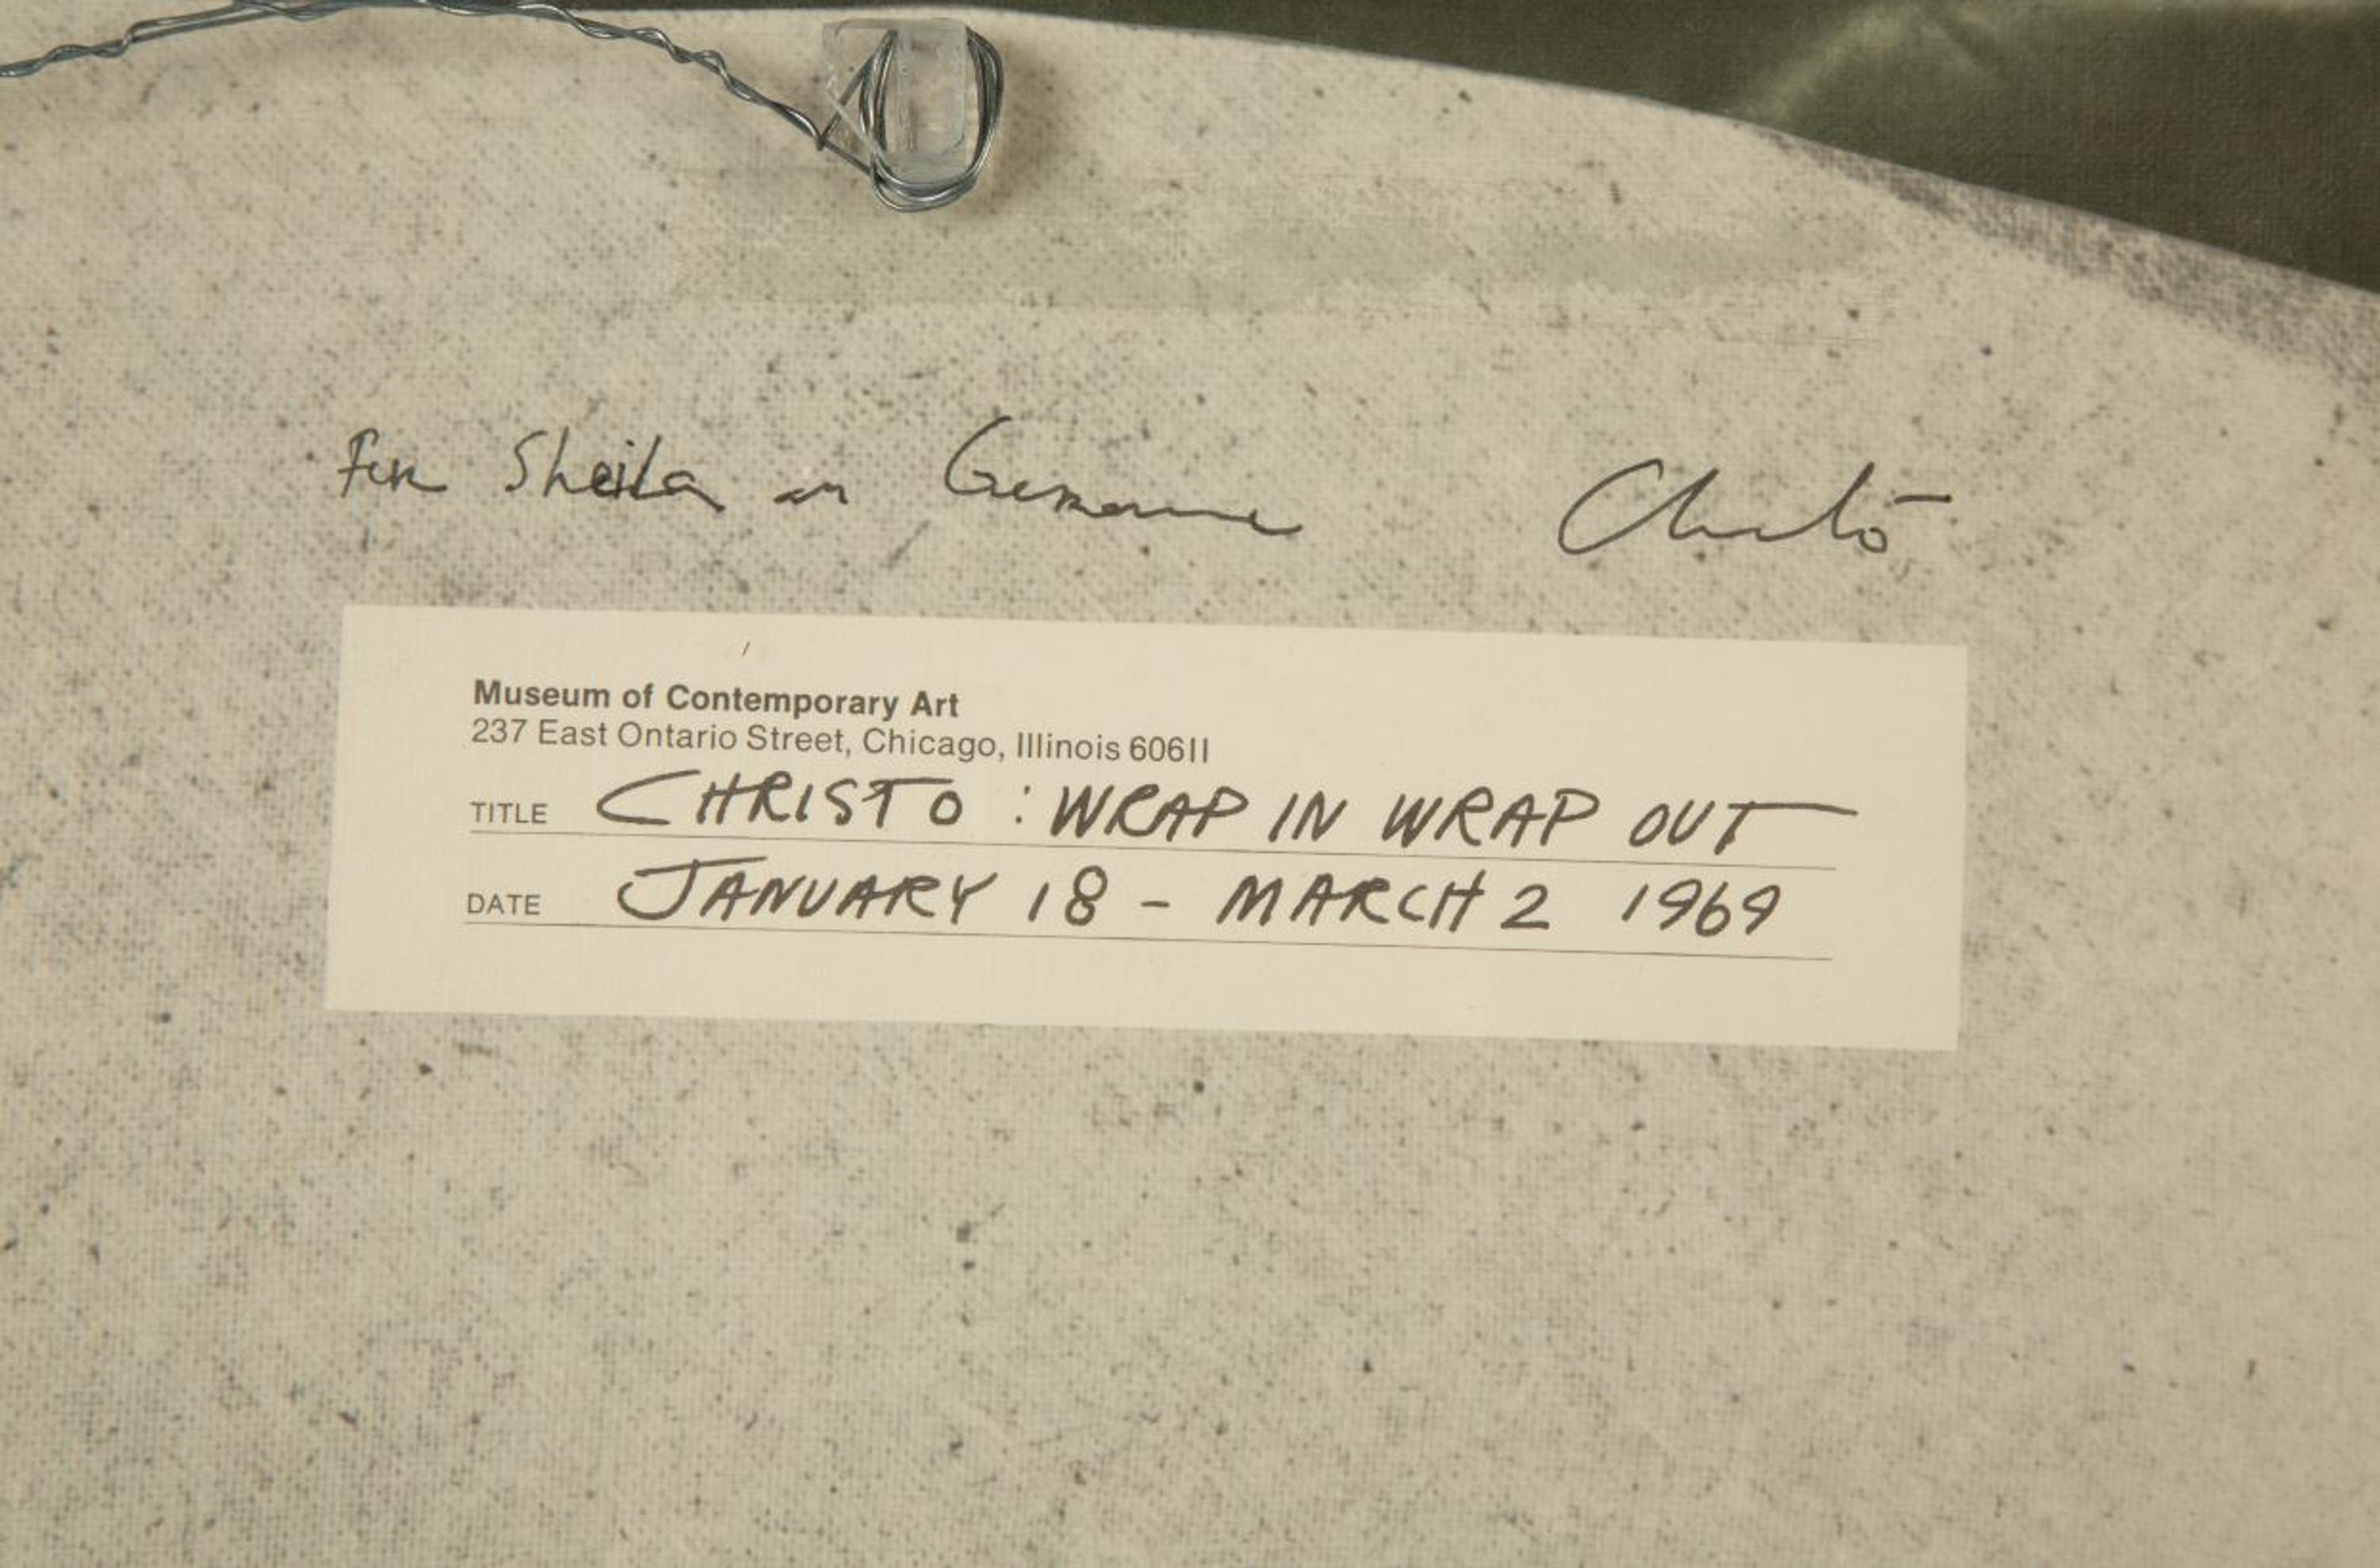 For Sheila Christo
Museum of Contemporary Art
237 East Ontario Street, Chicago, Illinois 60611
TITLE CHRISTO : WRAP IN WRAP OUT
DATE JANUARY 18 - MARCH 2 1969